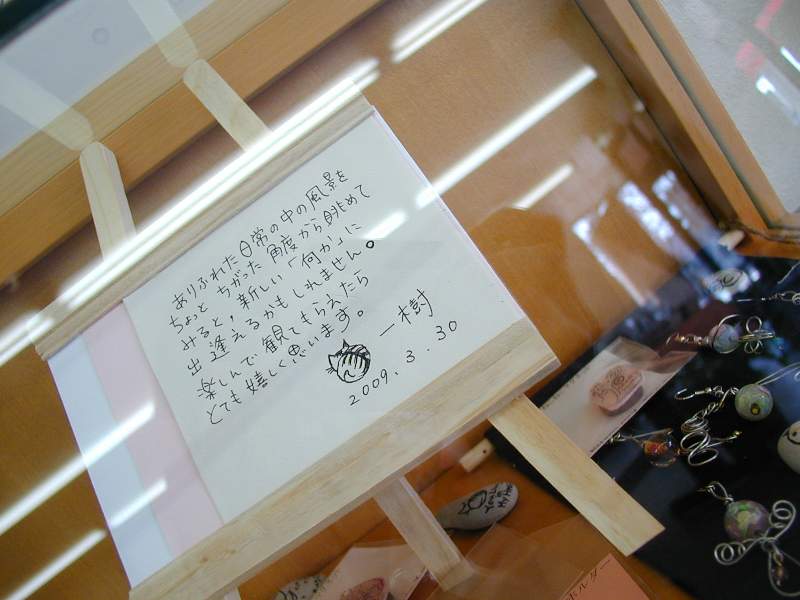 ありふれた日常の中の風景を
ちょっと ちがった 角度から眺めて
みると，新しい「何か」に
出逢えるかもしれません。
楽しんで観てもらえたら
とても嬉しく思います。
一樹
2009.3.30
ホルダー